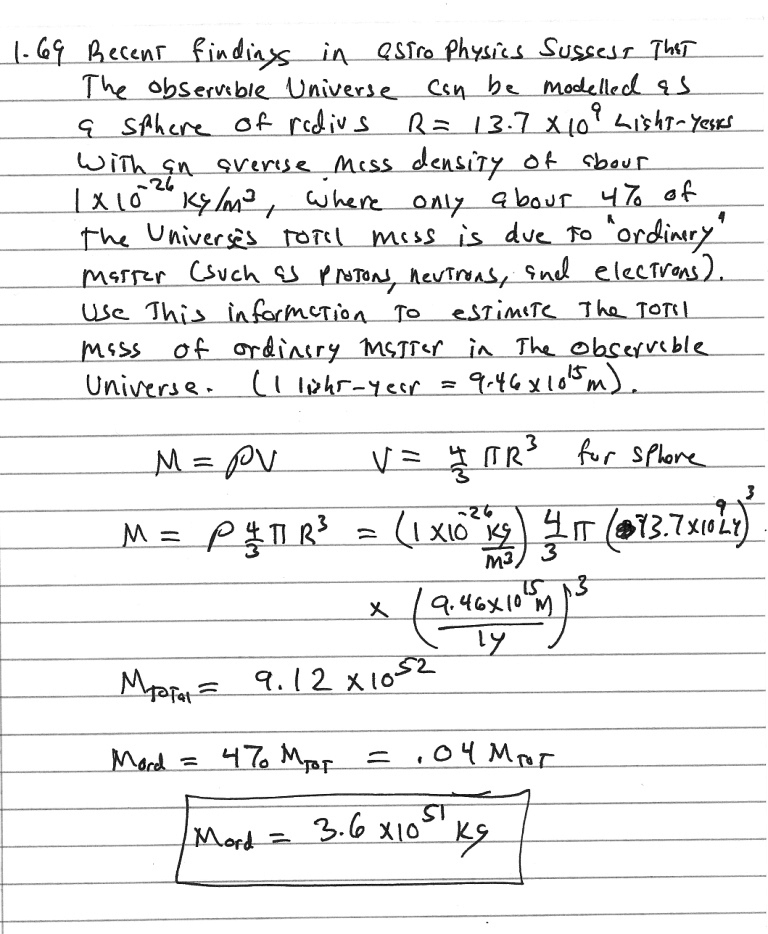 1.69 Recent findings in astrophysics suggest that
the observable Universe can be modelled as
a sphere of radius R = 13.7 × 10⁹ light-years
with an average mass density of about
1 × 10⁻²⁶ kg/m³, where only about 4% of
the Universe's total mass is due to "ordinary"
matter (such as protons, neutrons, and electrons).
Use this information to estimate the total
mass of ordinary matter in the observable
Universe. (1 light-year = 9.46 × 10¹⁵ m).
M = ρV V = 4/3 πR³ for sphere
M = ρ 4/3 π R³ = (1 × 10⁻²⁶ kg/m³) 4/3 π (13.7 × 10⁹ LY)³
× (9.46 × 10¹⁵ M / 1y)³
M_TOTAL = 9.12 × 10⁵²
Mord = 4% M_TOT = .04 M_TOT
Mord = 3.6 × 10⁵¹ kg